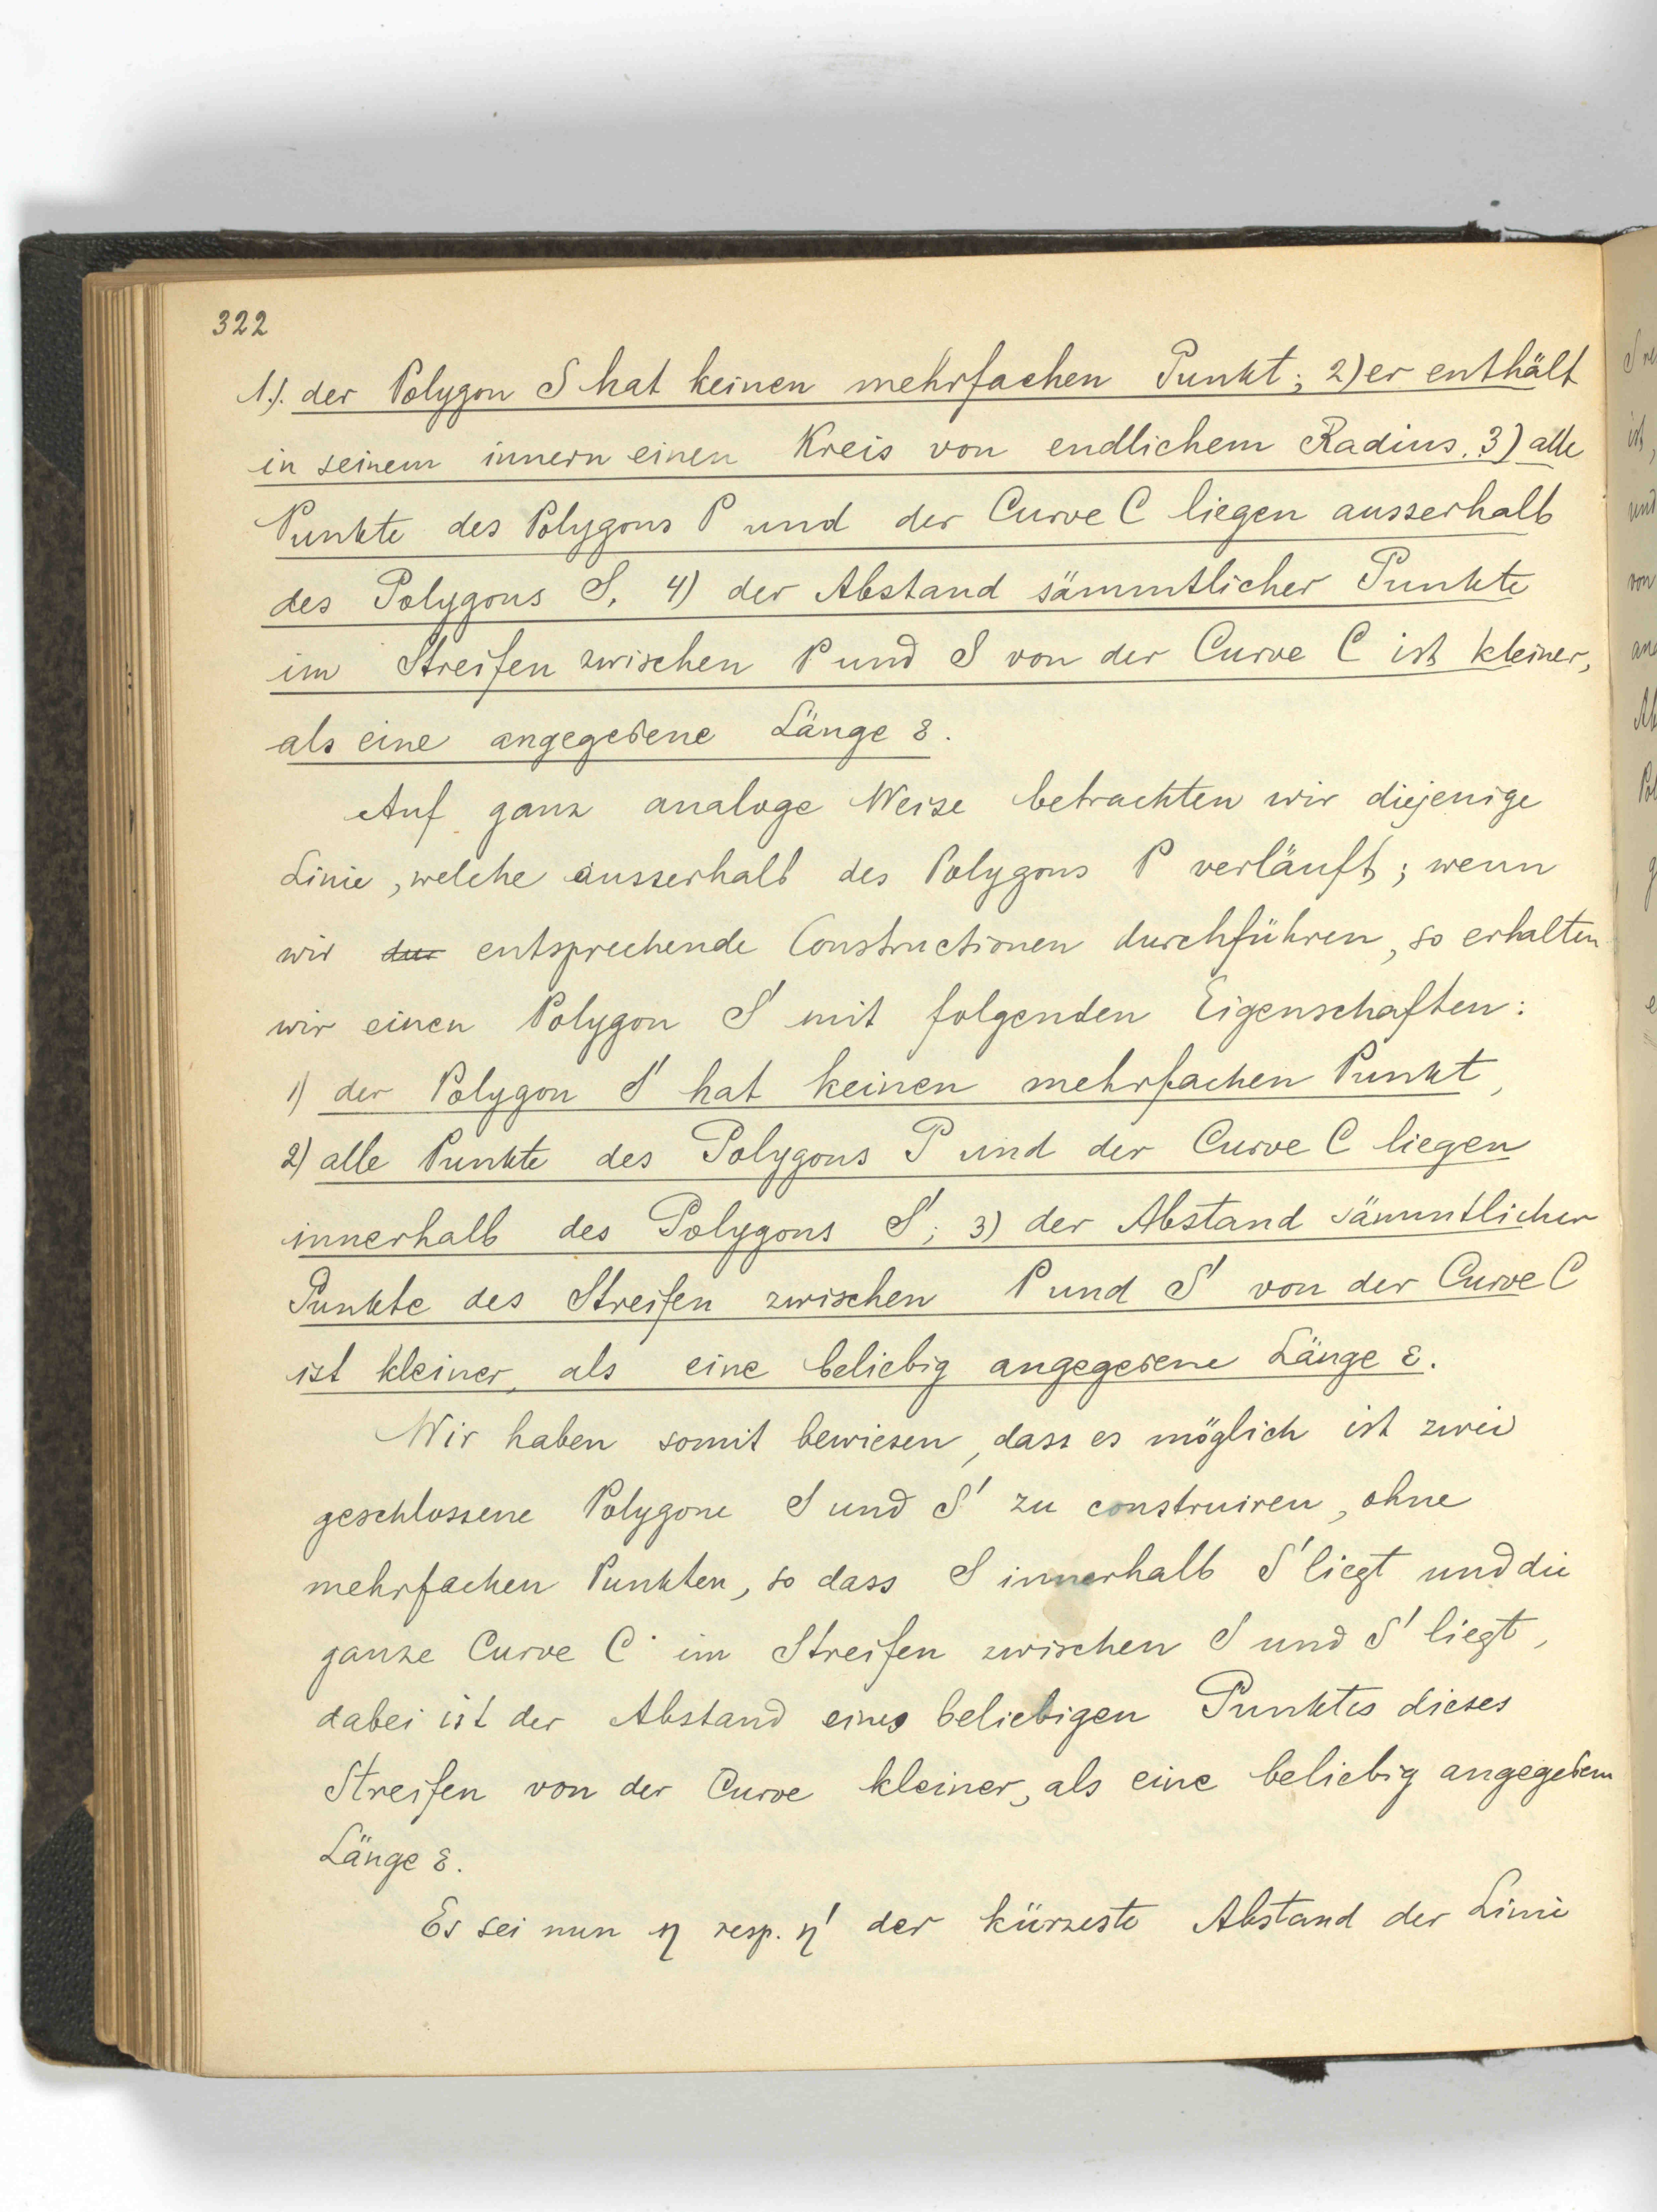 322
1.). der Polygon S hat keinen mehrfachen Punkt; 2) er enthält
in seinem innern einen Kreis von endlichem Radius. 3) alle
Punkte des Polygons P und der Curve C liegen ausserhalb
des Polygons S, 4) der Abstand sämmtlicher Punkte
im Streifen zwischen P und S von der Curve C ist kleiner,
als eine angegebene Länge ε.
Auf ganz analoge Weise betrachten wir diejenige
Linie, welche ausserhalb des Polygons P verläuft; wenn
wir entsprechende Constructionen durchführen, so erhalten
wir einen Polygon S' mit folgenden Eigenschaften:
1) der Polygon S' hat keinen mehrfachen Punkt,
2) alle Punkte des Polygons P und der Curve C liegen
innerhalb des Polygons S'; 3) der Abstand sämmtlicher
Punkte des Streifen zwischen P und S' von der Curve C
ist kleiner, als eine beliebig angegebene Länge ε.
Wir haben somit bewiesen, dass es möglich ist zwei
geschlossene Polygone S und S' zu construiren, ohne
mehrfachen Punkten, so dass S innerhalb S' liegt und die
ganze Curve C im Streifen zwischen S und S' liegt,
dabei ist der Abstand eines beliebigen Punktes dieses
Streifen von der Curve kleiner, als eine beliebig angegebene
Länge ε.
Es sei nun η resp. η' der kürzeste Abstand der Linie